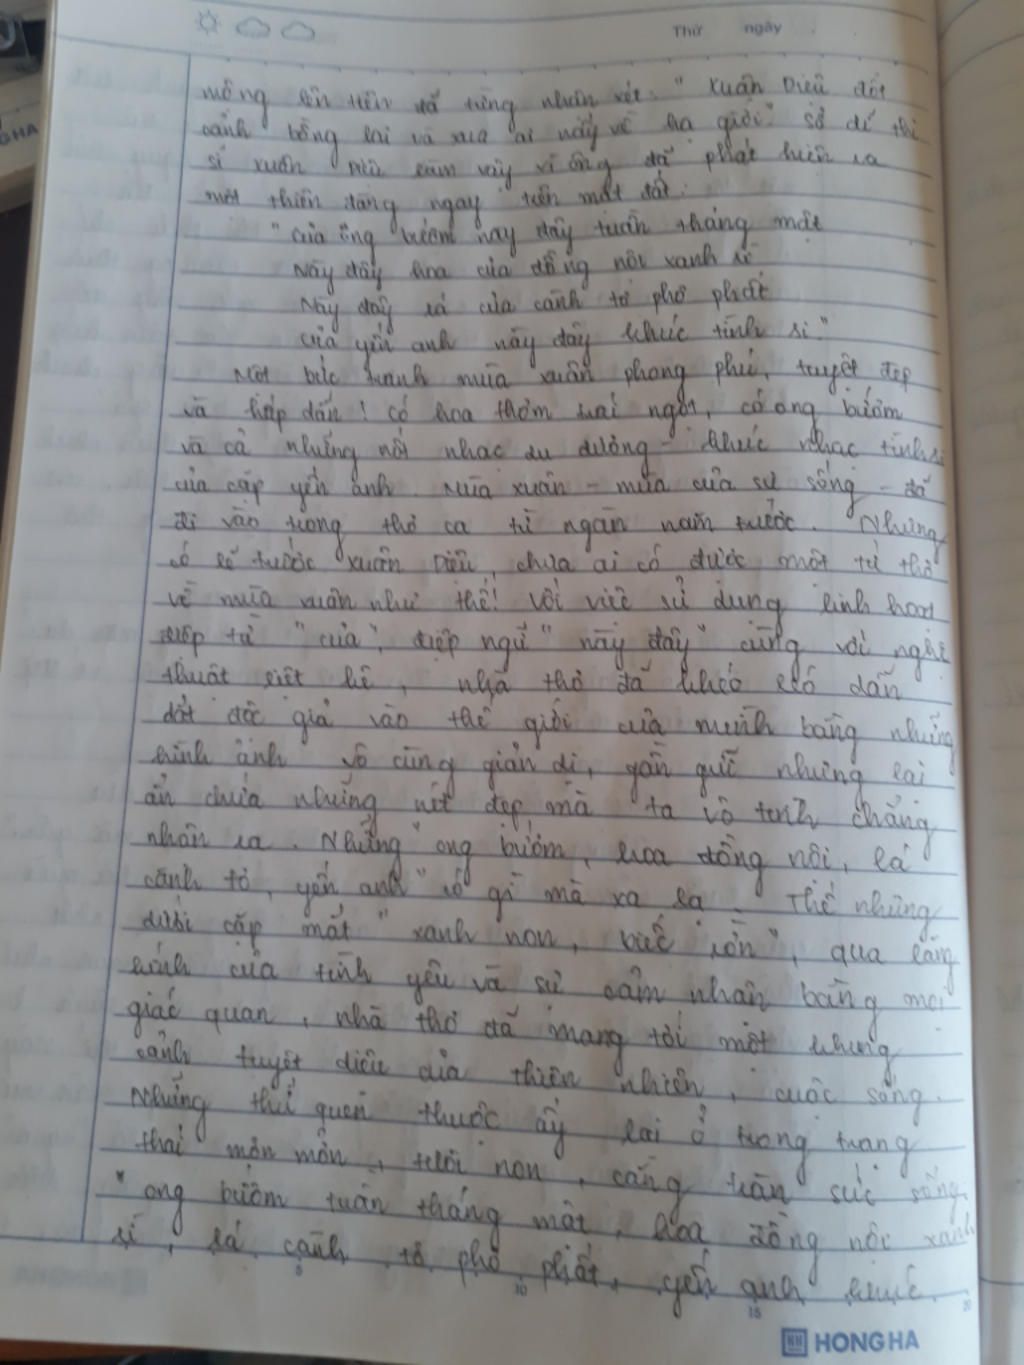 Thứ ngày
mộng lên tiên đã từng nhận xét: "Xuân Diệu đốt
cảnh bồng lai và xua ai nấy về hạ giới". Sở dĩ thi
sĩ Xuân Diệu làm vậy vì ông đã phát hiện ra
một thiên đàng ngay trên mặt đất:
"Của ong bướm này đây tuần tháng mật
Này đây hoa của đồng nội xanh rì
Này đây lá của cành tơ phơ phất
Của yến anh này đây khúc tình si."
Một bức tranh mùa xuân phong phú, tuyệt đẹp
và hấp dẫn! Có hoa thơm trái ngọt, có ong bướm
và cả những nốt nhạc du dương - khúc nhạc tình si
của cặp yến anh. Mùa xuân - mùa của sự sống - đã
đi vào trong thơ ca từ ngàn năm trước. Nhưng
có lẽ trước Xuân Diệu, chưa ai có được một tứ thơ
về mùa xuân như thế! Với việc sử dụng linh hoạt
điệp từ "của", điệp ngữ "này đây" cùng với nghệ
thuật liệt kê, nhà thơ đã khéo léo dẫn
dắt độc giả vào thế giới của mình bằng những
hình ảnh vô cùng giản dị, gần gũi nhưng lại
ẩn chứa những nét đẹp mà ta vô tình chẳng
nhận ra. Những "ong bướm, hoa đồng nội, lá
cành tơ, yến anh" có gì mà xa lạ. Thế nhưng
dưới cặp mắt "xanh non, biếc rờn", qua lăng
kính của tình yêu và sự cảm nhận bằng mọi
giác quan, nhà thơ đã mang tới một khung
cảnh tuyệt diệu của thiên nhiên, cuộc sống.
Những thứ quen thuộc ấy lại ở trong trạng
thái mơn mởn, tươi non, căng tràn sức sống,
"ong bướm tuần tháng mật, hoa đồng nội xanh
rì, lá cành tơ phơ phất, yến anh khúc
5 10 15 20
HONG HA